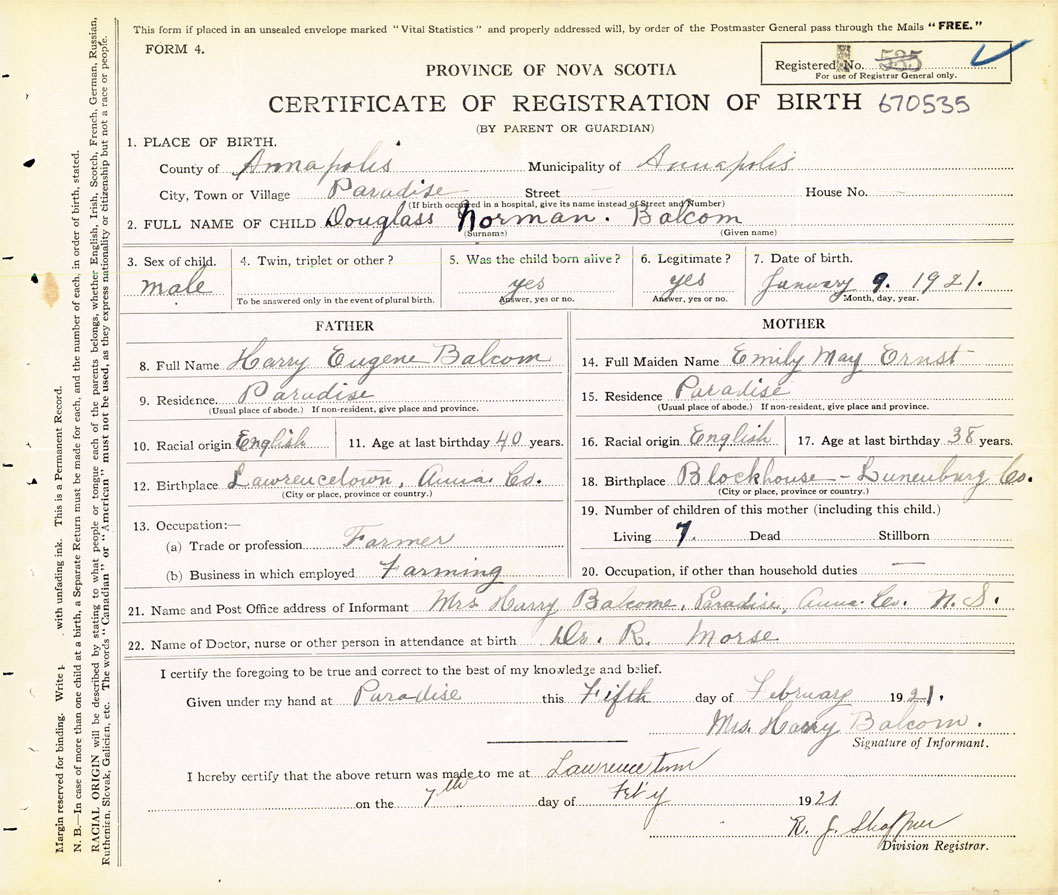 This form if placed in an unsealed envelope marked "Vital Statistics" and properly addressed will, by order of the Postmaster General pass through the Mails "FREE."
FORM 4.
Registered No. 535
For use of Registrar General only.
PROVINCE OF NOVA SCOTIA
CERTIFICATE OF REGISTRATION OF BIRTH 670535
(BY PARENT OR GUARDIAN)
1. PLACE OF BIRTH.
County of Annapolis Municipality of Annapolis
City, Town or Village Paradise Street — House No. —
(If birth occured in a hospital, give its name instead of Street and Number)
2. FULL NAME OF CHILD Douglass Norman. Balcom
(Surname) (Given name)
3. Sex of child. 4. Twin, triplet or other? 5. Was the child born alive? 6. Legitimate? 7. Date of birth.
male yes yes January 9. 1921.
To be answered only in the event of plural birth. Answer, yes or no. Answer, yes or no. Month, day, year.
FATHER
8. Full Name Harry Eugene Balcom
9. Residence. Paradise
(Usual place of abode.) If non-resident, give place and province.
10. Racial origin English 11. Age at last birthday 40 years.
12. Birthplace Lawrencetown, Anna. Co.
(City or place, province or country.)
13. Occupation:—
(a) Trade or profession Farmer
(b) Business in which employed Farming
MOTHER
14. Full Maiden Name Emily May Ernst
15. Residence Paradise
(Usual place of abode.) If non-resident, give place and province.
16. Racial origin English 17. Age at last birthday 38 years.
18. Birthplace Blockhouse – Lunenburg Co.
(City or place, province or country.)
19. Number of children of this mother (including this child.)
Living 7. Dead Stillborn
20. Occupation, if other than household duties —
21. Name and Post Office address of Informant Mrs Harry Balcome, Paradise, Anna. Co. N. S.
22. Name of Doctor, nurse or other person in attendance at birth Dr. R. Morse
I certify the foregoing to be true and correct to the best of my knowledge and belief.
Given under my hand at Paradise this Fifth day of February 1921.
Mrs. Harry Balcom.
Signature of Informant.
I hereby certify that the above return was made to me at Lawrencetown
on the 7th day of Feb'y 1921
R. J. Shaffner
Division Registrar.
Margin reserved for binding. Write with unfading ink. This is a Permanent Record.
N. B.—In case of more than one child at a birth, a Separate Return must be made for each, and the number of each, in order of birth, stated.
RACIAL ORIGIN will be described by stating to what people or tongue each of the parents belongs, whether English, Irish, Scotch, French, German, Russian,
Ruthenian, Slovak, Galician, etc. The words "Canadian" or "American" must not be used, as they express nationality or citizenship but not a race or people.